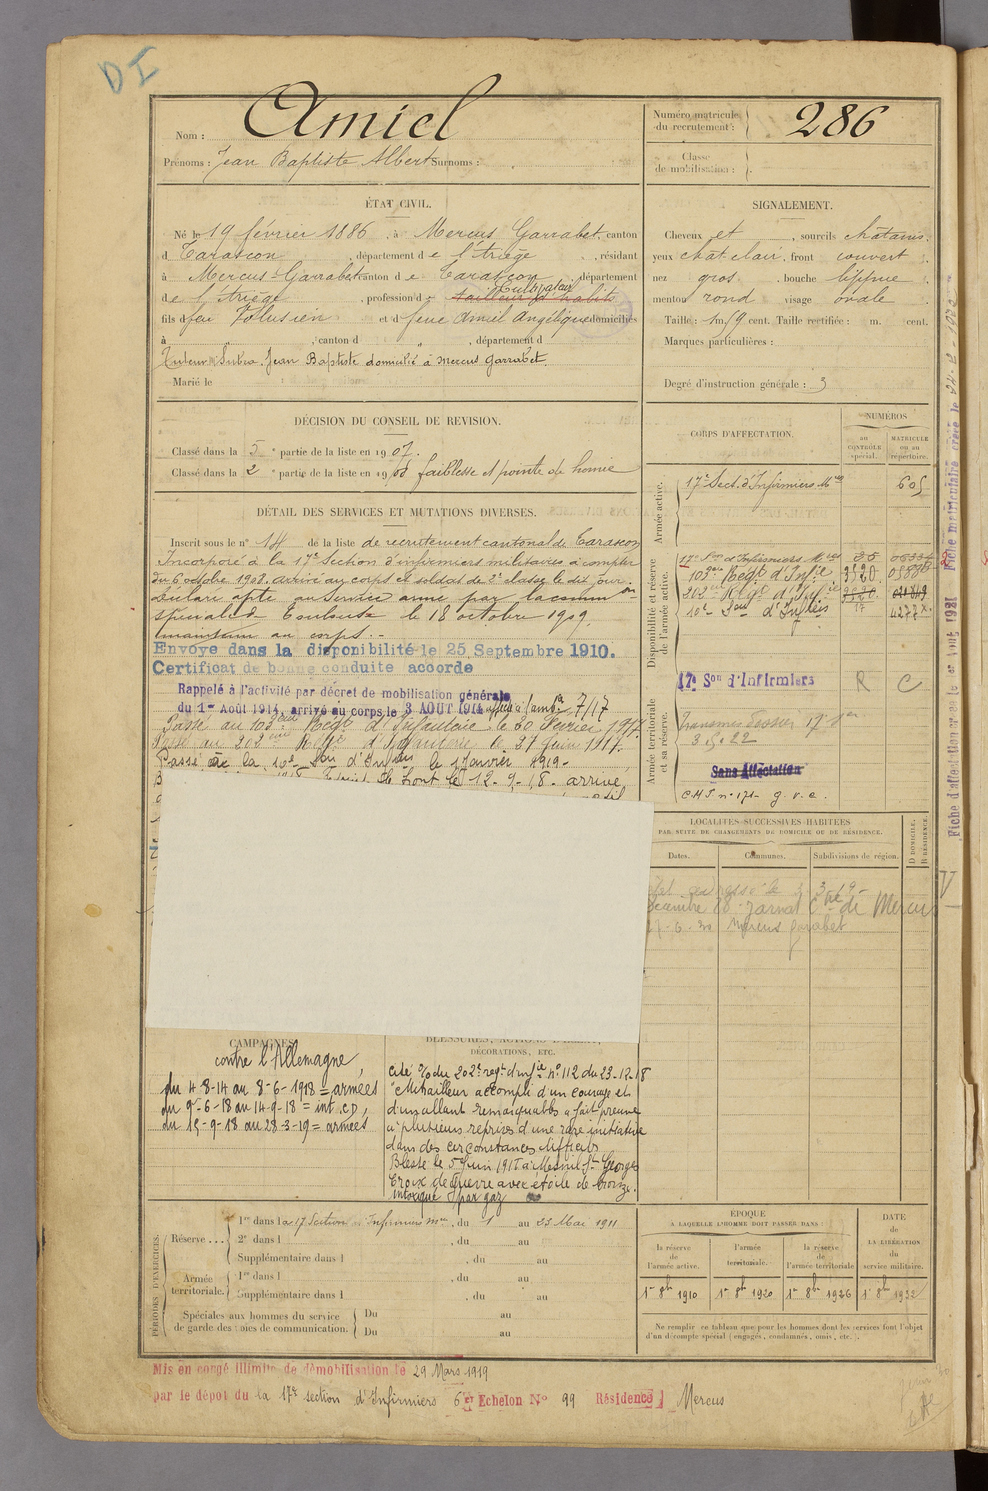 DI
Nom : Amiel
Prénoms : Jean Baptiste Albert Surnoms :
Numéro matricule du recrutement : 286
Classe de mobilisation :
ÉTAT CIVIL.
Né le 19 février 1886, à Mercus Garrabet, canton
d Tarascon, département de l'Ariège, résidant
à Mercus-Garrabet canton de Tarascon, département
Cultivateur
de l'Ariège, profession d tailleur d'habits
fils d feu Volusien et d feue Amiel Angélique domiciliés
à , canton d , département d
Tuteur Subra Jean Baptiste domicilié à Mercus Garrabet.
Marié le :
SIGNALEMENT.
Cheveux et , sourcils châtains,
yeux chat clair, front couvert
nez gros, bouche lippue
menton rond visage ovale
Taille : 1m, 59 cent. Taille rectifiée : m. cent.
Marques particulières :
Degré d'instruction générale : 3
DÉCISION DU CONSEIL DE REVISION.
Classé dans la 5e partie de la liste en 1907.
Classé dans la 2e partie de la liste en 1908 faiblesse et pointe de hernie
CORPS D'AFFECTATION.
NUMÉROS
AU CONTRÔLE spécial.
MATRICULE ou au répertoire.
Armée active.
17e Sect. d'Infirmiers Mres 605
Disponibilité et réserve de l'armée active.
17e Son d'Infirmiers Mres
103eme Régt d'Infie
202eme Régt d'Infie
10e Son d'Infiers
17e Son d'Infirmiers R C
Armée territoriale et sa réserve.
3.5.22
Sans Affectation
DÉTAIL DES SERVICES ET MUTATIONS DIVERSES.
Inscrit sous le n° 14 de la liste de recrutement cantonal de Tarascon
Incorporé à la 17e Section d'infirmiers militaires à compter
du 6 octobre 1908. arrivé au corps et soldat de 2e classe le dit jour.
Déclaré apte au Service armé par la commion
spéciale de Toulouse le 18 octobre 1909.
Maintenu au corps.
Envoyé dans la disponibilité le 25 Septembre 1910.
Certificat de bonne conduite accordé
Rappelé à l'activité par décret de mobilisation générale
du 1er Août 1914, arrivé au corps le 3 AOUT 1914
Passé au 103eme Régt d'Infanterie le 20 Février 1917.
Passé au 202eme Régt d'Infanterie le 27 Juin 1917.
Passé à la 10e Son d'Infiers le 1 Janvier 1919-
front le 12-9-18- arrivé
LOCALITÉS SUCCESSIVES HABITÉES
PAR SUITE DE CHANGEMENTS DE DOMICILE OU DE RÉSIDENCE.
Dates.
Communes.
Subdivisions de région.
D DOMICILE. R RÉSIDENCE.
Jarnat Cne de Mercus
Mercus Garabet
V
CAMPAGNES.
contre l'Allemagne
du 4-8-14 au 8-6-1918 = armées
du 9-6-18 au 14-9-18 = int. CD,
du 15-9-18 au 28-3-19 = armées
BLESSURES, ACTIONS D'ÉCLAT,
DÉCORATIONS, ETC.
Cité % du 202e regt d'infie n° 112 du 23-12-18
"Mitrailleur accompli d'un courage et
d'un allant remarquables a fait preuve
à plusieurs reprises d'une rare initiative
dans des circonstances difficiles
Blessé le 5 Juin 1918 à Mesnil St Georges
Croix de Guerre avec étoile de bronze.
intoxiqué par gaz
PÉRIODES D'EXERCICES.
Réserve ... 1re dans la 17 Section d'Infirmiers Mres, du 1 au 23 Mai 1911
2e dans l , du au
Supplémentaire dans l , du au
Armée territoriale. 1re dans l , du au
Supplémentaire dans l , du au
Spéciales aux hommes du service de garde des voies de communication. Du au
Du au
ÉPOQUE
À LAQUELLE L'HOMME DOIT PASSER DANS :
la réserve de l'armée active.
l'armée territoriale.
la réserve de l'armée territoriale
DATE de LA LIBÉRATION du service militaire.
1er 8bre 1910
1er 8bre 1920
1er 8bre 1926
1er 8bre 1932
Ne remplir ce tableau que pour les hommes dont les services font l'objet
d'un décompte spécial (engagés, condamnés, omis, etc.).
Mis en congé illimité de démobilisation le 29 Mars 1919
par le dépôt du la 17e section d'Infirmiers 6e Echelon N° 99 Résidence Mercus